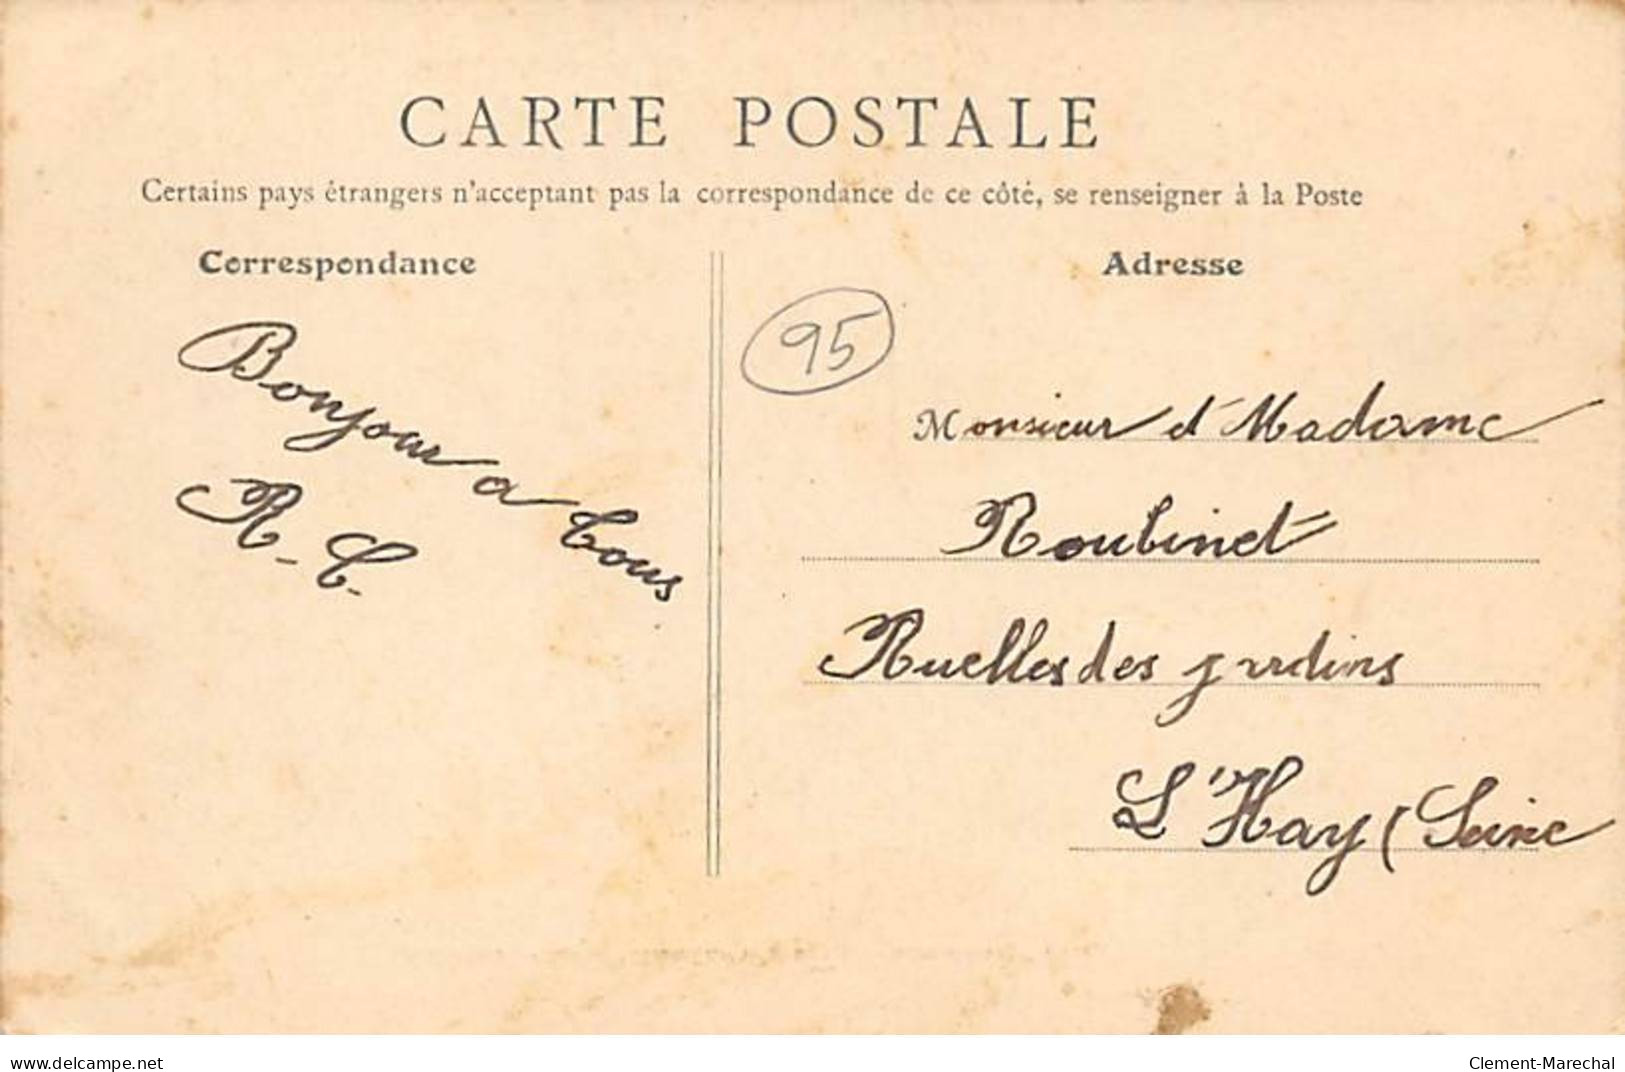 CARTE POSTALE
Certains pays étrangers n'acceptant pas la correspondance de ce côté, se renseigner à la Poste
Correspondance
Adresse
95
Bonjour a tous
R-C.
Monsieur et Madame
Roubinet
Ruelles des jardins
L'Hay (Seine
www.delcampe.net
Clement-Marechal